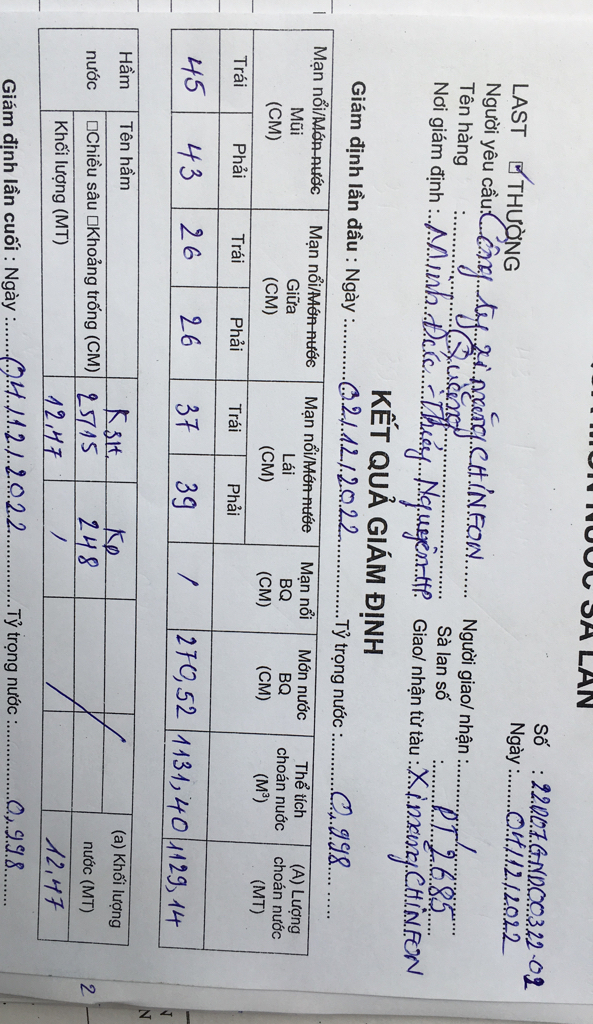 MÓN NƯỚC SÀ LAN
Số : 22D07GNDC0322-02
LAST ☑ THƯỜNG
Ngày :.......04/12/2022
Người yêu cầu: Công ty xi măng CHINFON
Người giao/ nhận :
Tên hàng : Quặng
Sà lan số : PT 2685
Nơi giám định : Minh Đức - Thủy Nguyên - HP
Giao/ nhận từ tàu : Xi măng CHINFON
KẾT QUẢ GIÁM ĐỊNH
Giám định lần đầu : Ngày :..........02/12/2022..........Tỷ trọng nước :..........0,998..........
Mạn nổi/Món nước Mũi (CM)
Mạn nổi/Món nước Giữa (CM)
Mạn nổi/Món nước Lái (CM)
Mạn nổi BQ (CM)
Món nước BQ (CM)
Thể tích choán nước (M³)
(A) Lượng choán nước (MT)
Trái Phải Trái Phải Trái Phải
45 43 26 26 37 39 / 270,52 1131,40 1129,14
Hầm nước
Tên hầm K sh. Kp
(a) Khối lượng nước (MT)
□Chiều sâu □Khoảng trống (CM) 25/15 248
Khối lượng (MT) 12,47 / 12,47
Giám định lần cuối : Ngày :.......04/12/2022..........Tỷ trọng nước :..........0,998.......
2